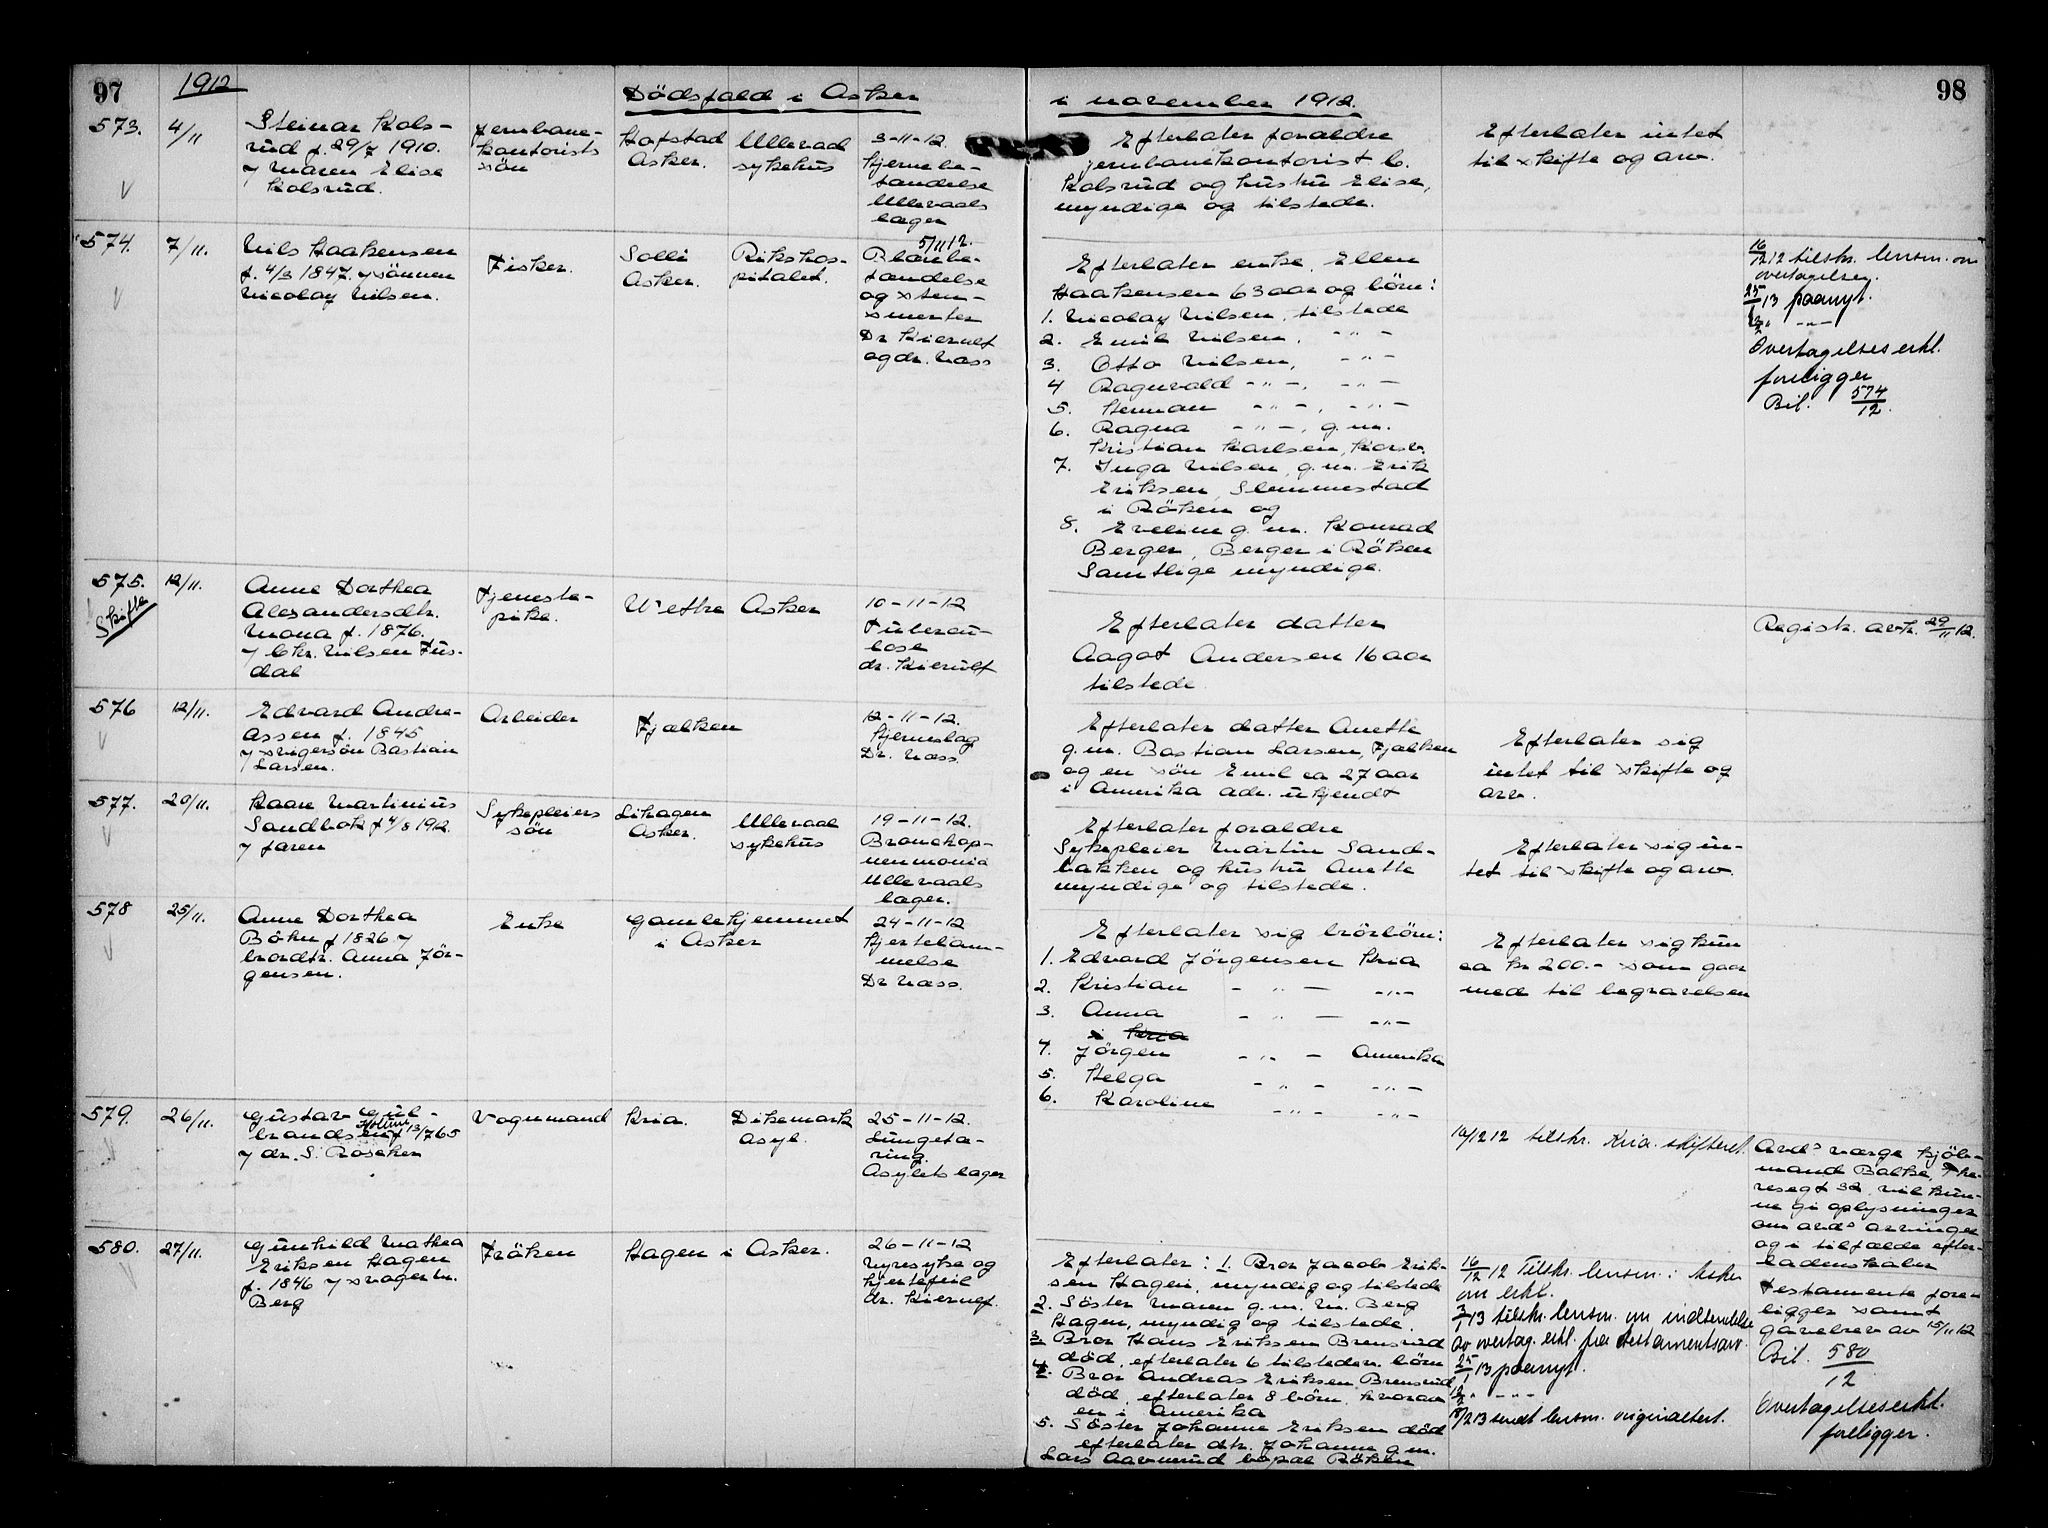 97
1912
Dödsfald i Asker
i november 1912.
98
573.
4/11
Steinar Kols-
rud f. 29/7 1910.
v/ Maren Elise
Kolsrud.
Jernbane-
kontorists
sön
Hofstad
Asker.
Ullevaal
sykehus
3-11-12.
Hjernebe-
tændelse
Ullevaals
læger
Efterlater forældre
jernbanekontorist C.
Kolsrud og hustru Elise,
myndige og tilstede.
Efterlater intet
til skifte og arv.
574.
7/11.
Nils Haakensen
f. 4/3 1847. v/ sönnen
Nicolay Nilsen.
Fisker.
Solli
Asker.
Rikshos-
pitalet.
5/11 12.
Blærebe-
tændelse
og sten-
smerter
Dr. Kierulf
og dr. Næss
Efterlater enke, Ellen
Haakensen 63 aar og börn:
1. Nicolay Nilsen, tilstede
2. Emil Nilsen, -"-
3. Otto Nilsen, -"-
4 Ragnvald -"-, -"-
5. Herman -"-, -"-
6. Ragna -"-, g.m.
Kristian Karlsen, Korsv.
7. Inga Nilsen, g.m. Erik
Eriksen, Slemmestad
i Röken og
8. Eveline g.m. Konrad
Berger, Berger i Röken
Samtlige myndige.
16/12 12 tilskr. lensm. om
overtagelsen.
25/1 13 paanyt.
-"-
Overtagelseserkl.
foreligger
Bil. 574/12.
575.
Skifte
12/11.
Anne Dorthea
Alexandersdtr.
Mona f. 1876.
v/ Chr. Nilsen Fus-
dal
Tjeneste-
pike.
Vettre Asker
10-11-12
Tubercu-
lose
dr. Kierulf
Efterlater datter
Aagot Andersen 16 aar
tilstede
Registr. avh. 29/11 12.
576
12/11.
Edvard Andre-
assen f. 1845
v/ svigersön Bastian
Larsen.
Arbeider
Fjælken
12-11-12.
Hjerneslag
Dr. Næss.
Efterlater datter Anette
g.m. Bastian Larsen, Fjælken
og en sön Emil ca 27 aar
i Amerika adr. ukjendt
Efterlater sig
intet til skifte og
arv.
577.
20/11.
Kaare Martinius
Sandbak f 4/8 1912.
v/ faren
Sykepleiers
sön
Lihagen
Asker.
Ullevaal
sykehus
19-11-12.
Bronchop-
neumonia
Ullevaals
læger.
Efterlater forældre
Sykepleier Martin Sand-
bakken og hustru Anette
myndige og tilstede.
Efterlater sig in-
tet til skifte og arv.
578
25/11.
Anne Dorthea
Böhn f 1826 v/
brordtr. Anna Jör-
gensen.
Enke
Gamlehjemmet
i Asker
24-11-12
Hjertelam-
melse
Dr Næss.
Efterlater sig brorbörn:
1. Edvard Jörgensen Kria
2. Kristian -"- -"-
3. Anna -"- -"-
i Kria
4. Jörgen -"- Amerika
5. Helga -"- -"-
6. Karoline -"- -"-
Efterlater sig kun
ca kr 200.- som gaar
med til begravelsen
579.
26/11.
Gustav Gul-
brandsen f 13/7 65
v/ dr. S. Roseher
Vognmand
Kria.
Dikemark
asyl.
25-11-12.
Lungetæ-
ring.
Asylets læger
10/12 12 tilskr. Kria. skifteret.
Avd's værge kjöb-
mand Balke, The-
resegt 32, vil kun-
ne gi oplysninger
om avd's arvinger
og i tilfælde efter-
ladenskaber
580.
27/11.
Gunhild Mathea
Eriksen Hagen
f. 1846 v/ svoger M.
Berg
Fröken
Hagen i Asker.
26-11-12
Nyresyke og
hjertefeil
dr. Kierulf.
Efterlater: 1. Bror Jacob Erik-
sen Hagen, myndig og tilstede
2. Söster Maren g.m. M. Berg
Hagen, myndig og tilstede.
3. Bror Hans Eriksen Brensrud
död, efterlater 6 tilstedev. börn
4. Bror Andreas Eriksen Brensrud
död, efterlater 8 börn, hvorav
en i Amerika
5. Söster Johanne Eriksen död
efterlater dtr. Johanne g.m.
Lars Aavnerud bopæl Röken
16/12 12 Tilskr. lensm. i Asker
om erkl.
3/1 13 tilskr. lensm. om indsendelse
av overtag. erkl. fra testamentsarv.
25/1 13 paanyt.
-"-
18/2 13 sendt lensm. originaltest.
Testamente fore-
ligger samt
gavebrev av 15/11 12
Bil. 580/12
Overtagelseserkl.
foreligger.